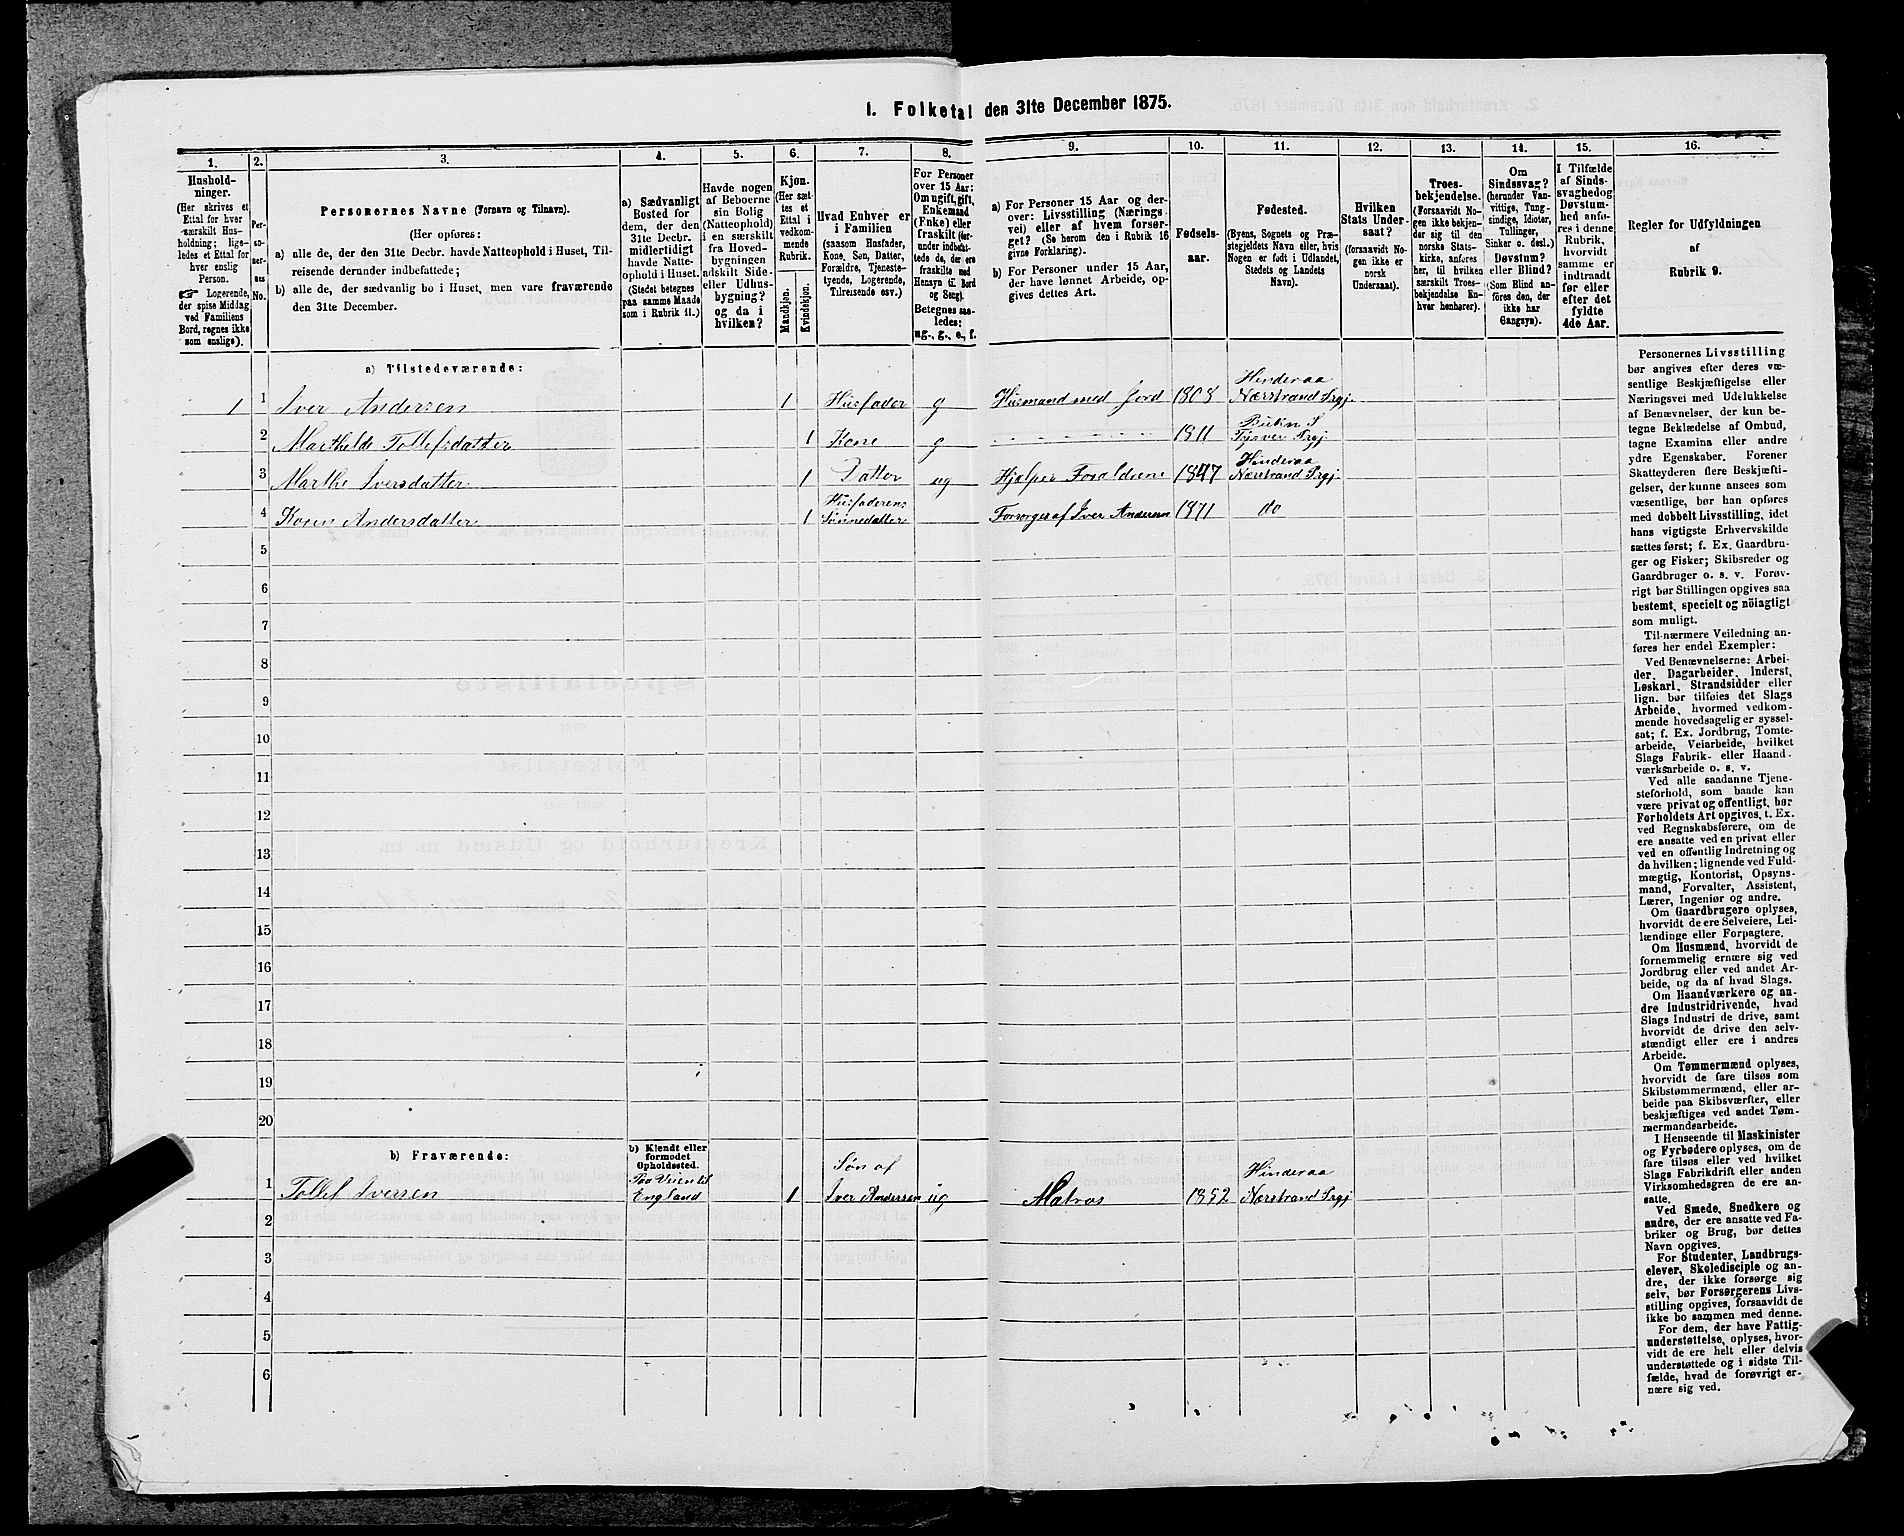 1. Folketal den 31te December 1875.
1. 2. 3. 4. 5. 6. 7. 8. 9. 10. 11. 12. 13. 14. 15. 16.
Hushold-
ninger.
(Her skrives et
Ettal for hver
særskilt Hus-
holdning; lige-
ledes et Ettal for
hver enslig
Person.
☞ Logerende,
der spise Middag
ved Familiens
Bord, regnes ikke
som enslige).
Per-
so-
ner-
nes
No.
Personernes Navne (Fornavn og Tilnavn).
(Her opføres:
a) alle de, der den 31te Decbr. havde Natteophold i Huset, Til-
reisende derunder indbefattede;
b) alle de, der sædvanlig bo i Huset, men vare fraværende
den 31te December.
a) Sædvanligt
Bosted for
dem, der den
31te Decbr.
midlertidigt
havde Natte-
ophold i Huset.
(Stedet betegnes
paa samme Maade
som i Rubrik 11.)
Havde nogen
af Beboerne
sin Bolig
(Natteophold)
i en særskilt
fra Hoved-
bygningen
adskilt Side-
eller Udhus-
bygning?
og da i
hvilken?
Kjøn.
(Her sæt-
tes et
Ettal i
vedkom-
mende
Rubrik.
Mandkjøn.
Kvindekjøn.
Hvad Enhver er
i Familien
(saasom Husfader,
Kone, Søn, Datter,
Forældre, Tjeneste-
tyende, Logerende,
Tilreisende osv.)
For Personer
over 15 Aar:
Om ugift, gift,
Enkemand
(Enke) eller
fraskilt (her-
under indbefat-
tede de, der ere
fraskilte med
Hensyn til Bord
og Seng).
Betegnes saa-
ledes:
ug., g., e., f.
a) For Personer 15 Aar og der-
over: Livsstilling (Nærings-
vei) eller af hvem forsør-
get? (Se herom den i Rubrik 16
givne Forklaring).
b) For Personer under 15 Aar,
der have lønnet Arbeide, op-
gives dettes Art.
Fødsels-
aar.
Fødested.
(Byens, Sognets og Præ-
stegjeldets Navn eller, hvis
Nogen er født i Udlandet,
Stedets og Landets
Navn).
Hvilken
Stats Under-
saat?
(forsaavidt No-
gen ikke er
norsk
Undersaat).
Troes-
bekjendelse.
(Forsaavidt No-
gen ikke bekjen-
der sig til den
norske Stats-
kirke, anføres
her, til hvilken
særskilt Troes-
bekjendelse En-
hver henhører).
Om
Sindssvag?
(herunder Van-
vittige, Tung-
sindige, Idioter,
Tullinger,
Sinker o. desl.)
Døvstum?
eller Blind?
(Som Blind an-
føres den, der
ikke har
Gangsyn).
I Tilfælde
af Sinds-
svaghed og
Døvstum-
hed anfø-
res i denne
Rubrik,
hvorvidt
samme er
indtraadt
før eller
efter det
fyldte
4de Aar.
Regler for Udfyldningen
af
Rubrik 9.
a) Tilstedeværende:
1 1 Iver Andersen 1 Husfader g Husmand med Jord 1803 Hinderaa Nærstrand Prgj.
2 Marthilde Tollefsdatter 1 Kone g 1811 Tysvær Prgj
3 Marthe Iversdatter 1 Datter ug Hjelper Foraldrene 1847 Hinderaa Nærstrand Prgj.
4 Karen Andersdatter 1 Husfaderens Sønnedatter Forsorges af Iver Andersen 1871 do
5
6
7
8
9
10
11
12
13
14
15
16
17
18
19
20
b) Fraværende:
b) Kjendt eller
formodet
Opholdssted.
1 Tollef Iversen Paa Veien til England 1 Søn af Iver Andersen ug Matros 1852 Hinderaa Nærstrand Prgj
2
3
4
5
6
Personernes Livsstilling
bør angives efter deres væ-
sentlige Beskjæftigelse eller
Næringsvei med Udelukkelse
af Benævnelser, der kun be-
tegne Beklædelse af Ombud,
tagne Examina eller andre
ydre Egenskaber. Forener
Skatteyderen flere Beskjæfti-
gelser, der kunne ansees som
væsentlige, bør han opføres
med dobbelt Livsstilling, idet
hans vigtigste Erhvervskilde
sættes først; f. Ex. Gaardbru-
ger og Fisker; Skibsreder og
Gaardbruger o. s. v. Forøv-
rigt bør Stillingen opgives saa
bestemt, specielt og nöiagtigt
som muligt.
Til nærmere Veiledning an-
føres her endel Exempler:
Ved Benævnelserne: Arbei-
der, Dagarbeider, Inderst,
Løskarl, Strandsidder eller
lign. bør tilføies det Slags
Arbeide, hvormed vedkom-
mende hovedsagelig er syssel-
sat; f. Ex. Jordbrug, Tomte-
arbeide, Veiarbeide, hvilket
Slags Fabrik- eller Haand-
værksarbeide o. s. v.
Ved alle saadanne Tjene-
steforhold, som baade kan
være privat og offentligt, bør
Forholdets Art opgives, t. Ex.
ved Regnskabsførere, om de
ere ansatte ved en privat eller
ved en offentlig Indretning og
da hvilken; lignende ved Fuld-
mægtig, Kontorist, Opsyns-
mand, Forvalter, Assistent,
Lærer, Ingeniør og andre.
Om Gaardbrugere oplyses,
hvorvidt de ere Selveiere, Lei-
lændinge eller Forpagtere.
Om Husmænd, hvorvidt de
fornemmelig ernære sig ved
Jordbrug eller ved andet Ar-
beide, og da af hvad Slags.
Om Haandværkere og an-
dre Industridrivende, hvad
Slags Industri de drive, samt
hvorvidt de drive den selv-
stændigt eller ere i andres
Arbeide.
Om Tømmermænd oplyses,
hvorvidt de fare tilsøs som
Skibstømmermænd, eller ar-
beide paa Skibsværfter, eller
beskjæftiges ved andet Tøm-
mermandsarbeide.
I Henseende til Maskinister
og Fyrbødere oplyses, om de
fare tilsøs eller ved hvilket
Slags Fabrikdrift eller anden
Virksomhedsgren de ere an-
satte.
Ved Smede, Snedkere og
andre, der ere ansatte ved Fa-
briker og Brug, bør dettes
Navn opgives.
For Studenter, Landbrugs-
elever, Skoledisciple og an-
dre, der ikke forsørge sig
selv, bør Forsørgerens Livs-
stilling opgives, forsaavidt de
ikke bo sammen med denne.
For dem, der have Fattig-
understøttelse, oplyses, hvor-
vidt de ere helt eller delvis
understøttede og i sidste Til-
fælde, hvad de forøvrigt er-
nære sig ved.